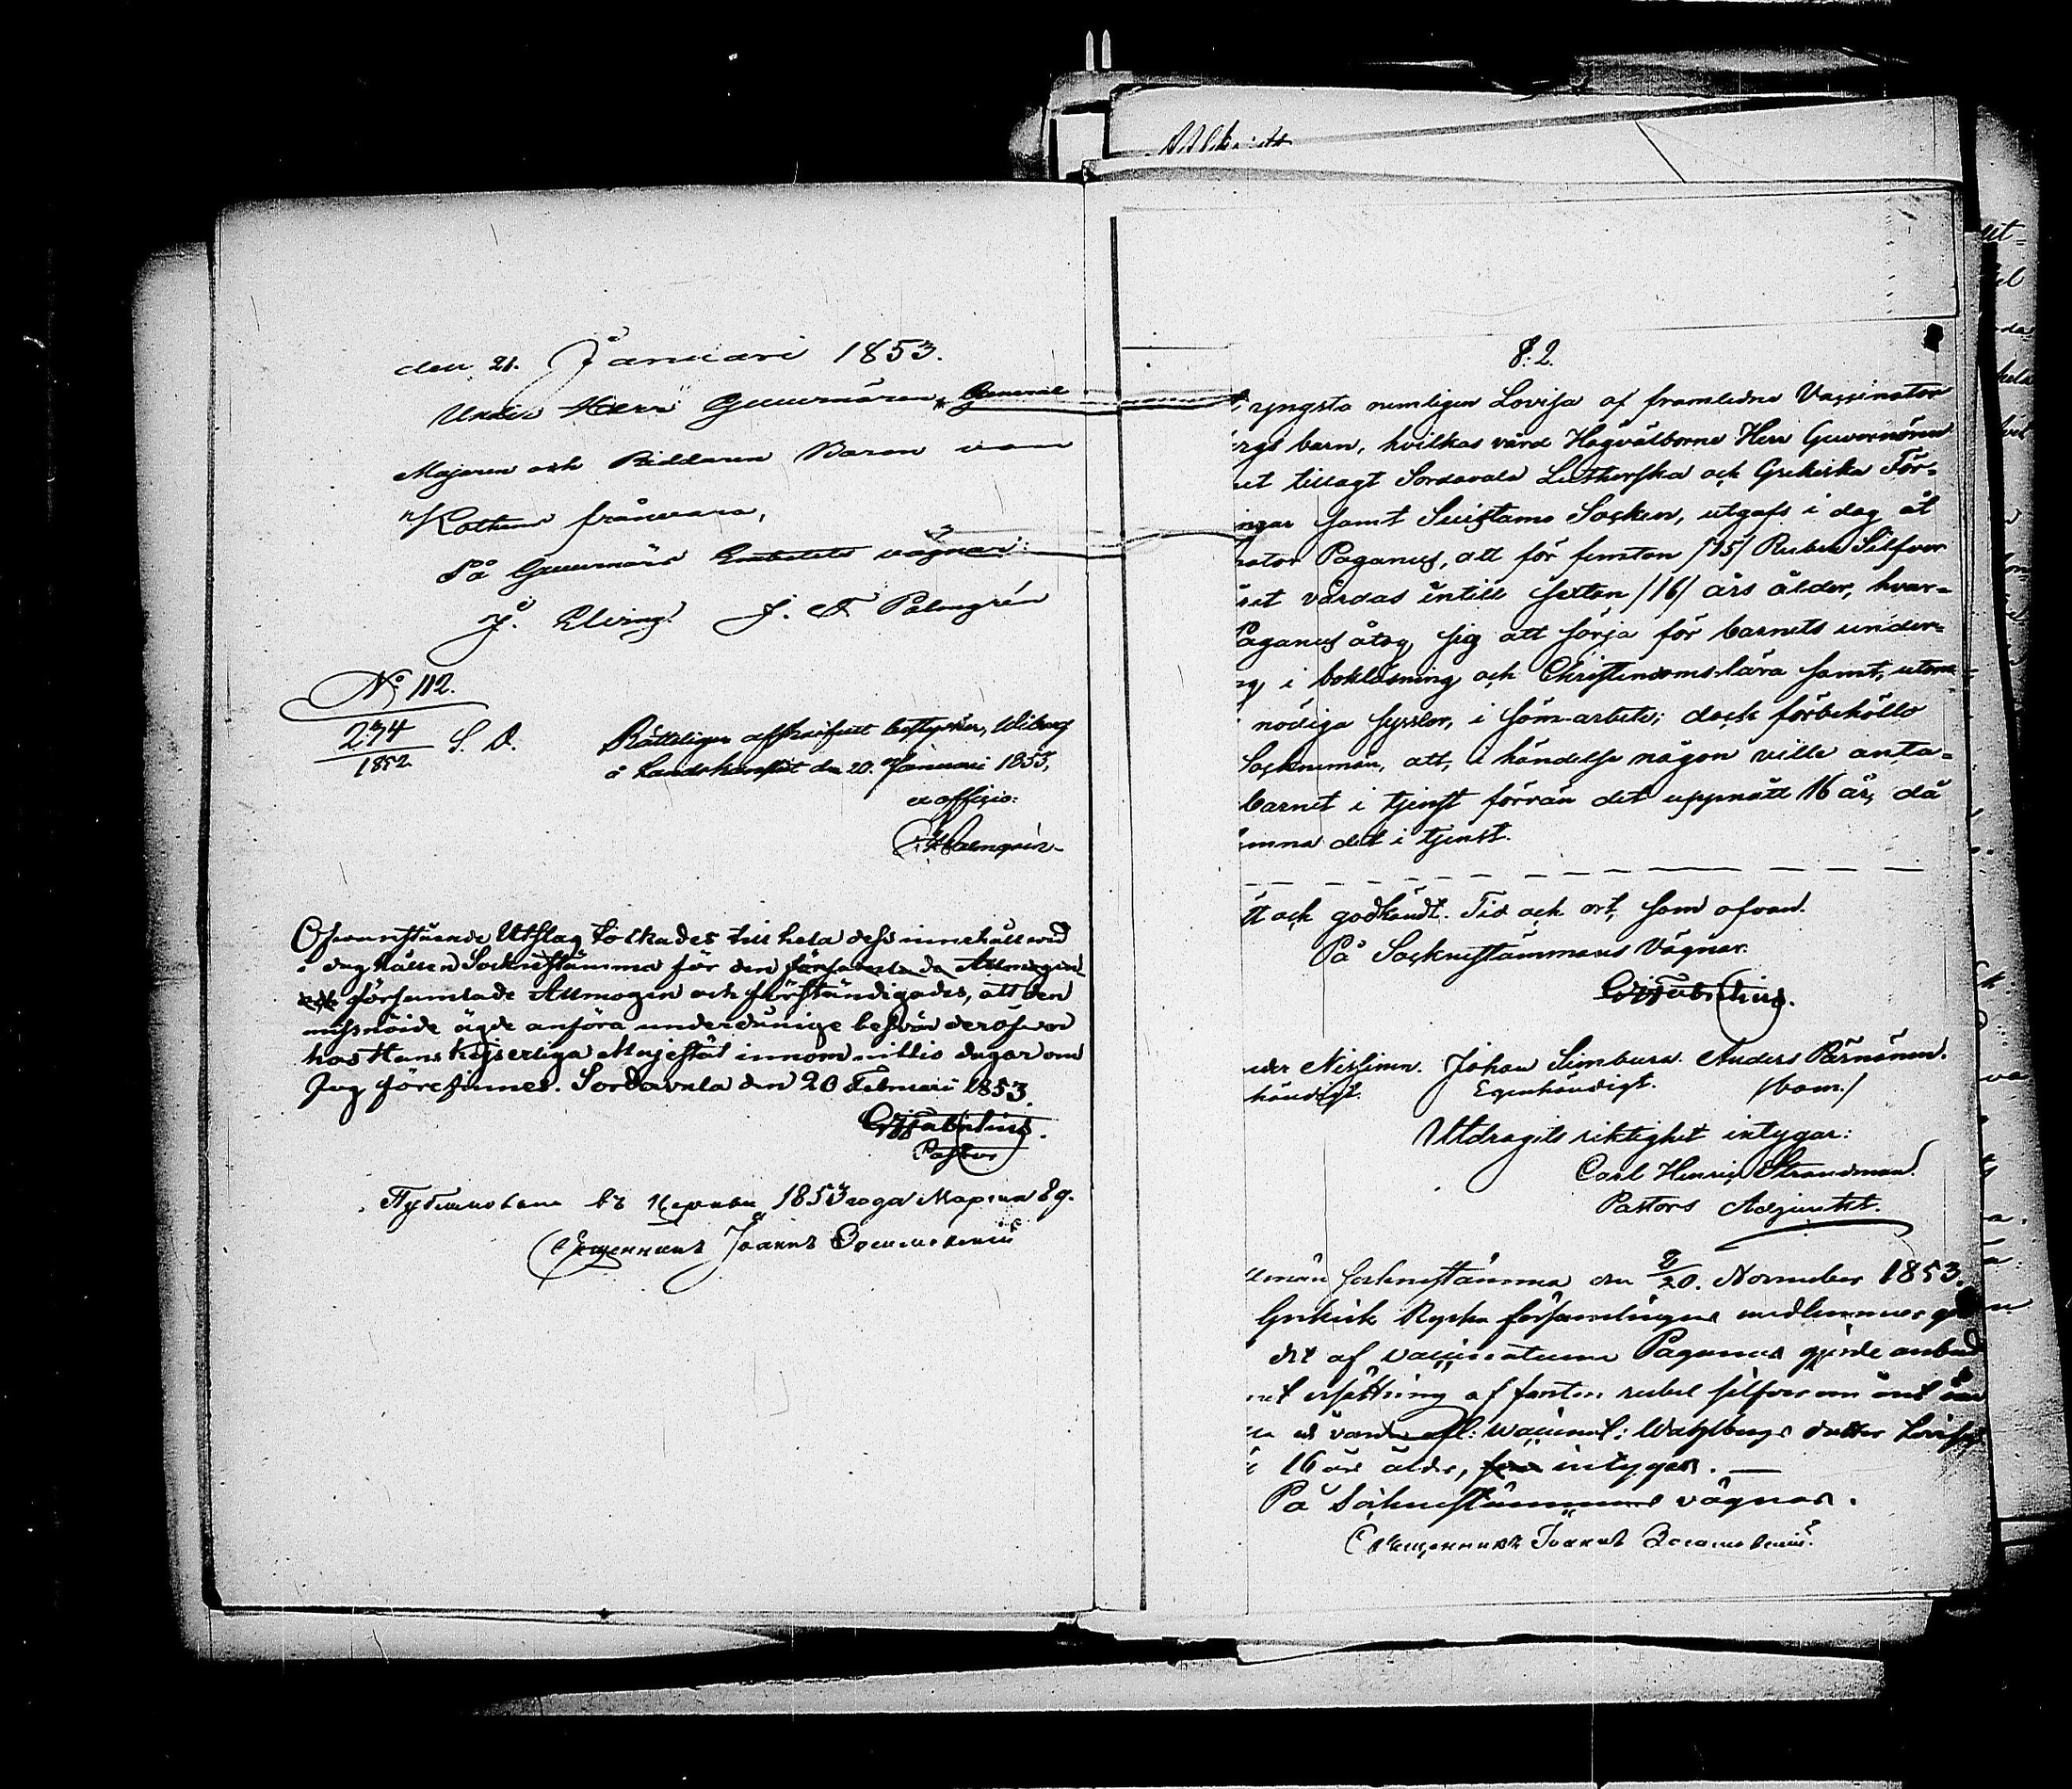 den 21. Januari 1853.
Under Herr Guvernören, General
Majoren och Riddaren Baron von
Kothens frånvaro,
På Guvernörs Embetets vägnar:
J. Elving. J. F. Palmgrén
No 112.
234
1852 S. D.
Rätteligen afskrifvet bestyrker, Wiborg
å Landskansliet den 20. Januari 1853,
ex officio:
Palmgrén
Ofvanstående Utslag tolkades till hela dess innehåll wid
i dag hållen Socknestämma för den församlade Allmogen
församlade Allmogen och förständigades, att den
missnöide ägde anföra underdånige besvär deröfver
hos Hans Kejserliga Majestät innom nittio dagar om
Jag förefinnes. Sordavala den 20 Februari 1853.
Fabritius.
Pastor
Публиковано въ Церкви 1853 года Марта 8 д.
Священникъ Іоаннъ
§. 2.
yngsta nemligen Lovisa af framledne Vaccinator
bergs barn, hvilkas vård Högvälborne Herr Guvernören
tillagt Sordavala Lutherska och Grekiska För-
ingar samt Suistamo Socken, utgafs i dag åt
nator Paganus, att för femton /15/ Rubel Silfver
året vårdas intill sexton /16/ års ålder, hvar-
Paganus åtog sig att sörja för barnets under-
ng i bokläsning och Christendomslära samt, utom
nödiga sysslor, i söm-arbete; dock förbehöllo
Socknemän, att, i händelse någon ville anta-
barnet i tjenst förrän det uppnått 16 år, då
lemna det i tjenst.
tt och godkändt. Tid och ort, som ofvan.
På Socknestämmans Vägnar.
Fabritius.
nder Nissinen. Johan Simbura. Anders Pärnänen.
händigt. Egenhändigt. /bom./
Utdragets riktighet intygar:
Carl Henric Strandman.
Pastors Adjunkt.
socknestämma den 8/20. November 1853.
Grekisk Ryska församlingens medlemmar
det af vaccinatorn Paganus gjorde anbud
ersättning af femton rubel silfver om året
vaccinat: Wahlbergs dotter Lovisa
16 års ålder, intygas. —
På Socknestämmans vägnar.
Священникъ Іоаннъ